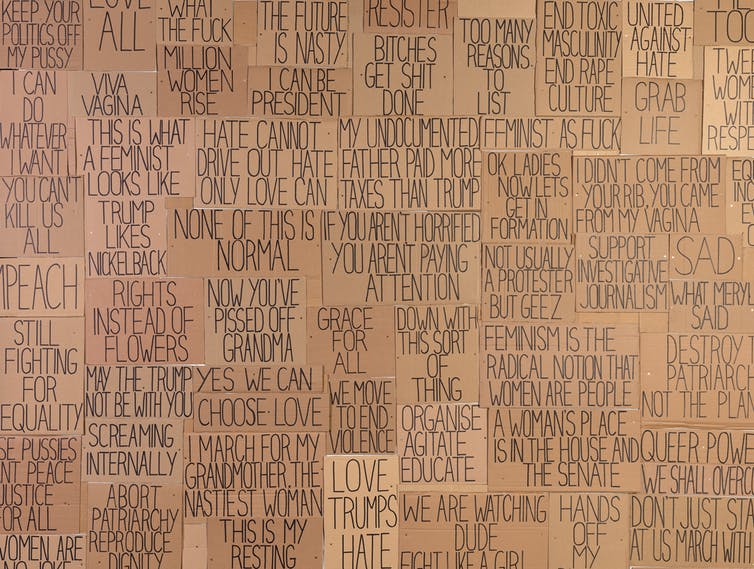 KEEP YOUR
POLITICS OFF
MY PUSSY
LOVE
ALL
WHAT
THE FUCK
THE FUTURE
IS NASTY
RESISTER
BITCHES
GET SHIT
DONE
TOO MANY
REASONS
TO
LIST
END TOXIC
MASCULINITY
END RAPE
CULTURE
UNITED
AGAINST
HATE
TOO
I CAN
DO
WHATEVER
I WANT
VIVA
VAGINA
MILLION
WOMEN
RISE
I CAN BE
PRESIDENT
GRAB
LIFE
TWEE
WOME
WIT
RESPE
THIS IS WHAT
A FEMINIST
LOOKS LIKE
HATE CANNOT
DRIVE OUT HATE
ONLY LOVE CAN
MY UNDOCUMENTED
FATHER PAID MORE
TAXES THAN TRUMP
FEMINIST AS FUCK
OK LADIES
NOW LETS
GET IN
FORMATION
I DIDN'T COME FROM
YOUR RIB, YOU CAME
FROM MY VAGINA
YOU CAN'T
KILL US
ALL
TRUMP
LIKES
NICKELBACK
NONE OF THIS IS
NORMAL
IF YOU AREN'T HORRIFIED
YOU ARENT PAYING
ATTENTION
NOT USUALLY
A PROTESTER
BUT GEEZ
SUPPORT
INVESTIGATIVE
JOURNALISM
SAD
WHAT MERYL
SAID
MPEACH
RIGHTS
INSTEAD OF
FLOWERS
NOW YOU'VE
PISSED OFF
GRANDMA
GRACE
FOR
ALL
DOWN WITH
THIS SORT
OF
THING
FEMINISM IS THE
RADICAL NOTION THAT
WOMEN ARE PEOPLE
DESTROY T
PATRIARC
NOT THE PLAN
STILL
FIGHTING
FOR
EQUALITY
MAY THE TRUMP
NOT BE WITH YOU
YES WE CAN
CHOOSE LOVE
WE MOVE
TO END
VIOLENCE
ORGANISE
AGITATE
EDUCATE
A WOMAN'S PLACE
IS IN THE HOUSE AND
THE SENATE
QUEER POWE
WE SHALL OVERCO
SCREAMING
INTERNALLY
I MARCH FOR MY
GRANDMOTHER. THE
NASTIEST WOMAN
SE PUSSIES
NT PEACE
JUSTICE
FOR ALL
ABORT
PATRIARCHY
REPRODUCE
DIGNITY
THIS IS MY
RESTING
LOVE
TRUMPS
HATE
WE ARE WATCHING
DUDE
FIGHT LIKE A GIRL
HANDS
OFF
MY
DON'T JUST STA
AT US MARCH WITH
WOMEN ARE